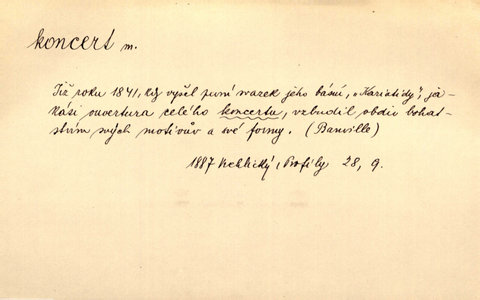 koncert m.
Již roku 1841, kdy vyšel první svazek jeho básní, „Kariatidy“, ja-
kási ouvertura celého koncertu, vzbudil obdiv bohat-
stvím svých motivův a své formy. (Banville)
1887 Vrchlický, Profily 28, 9.